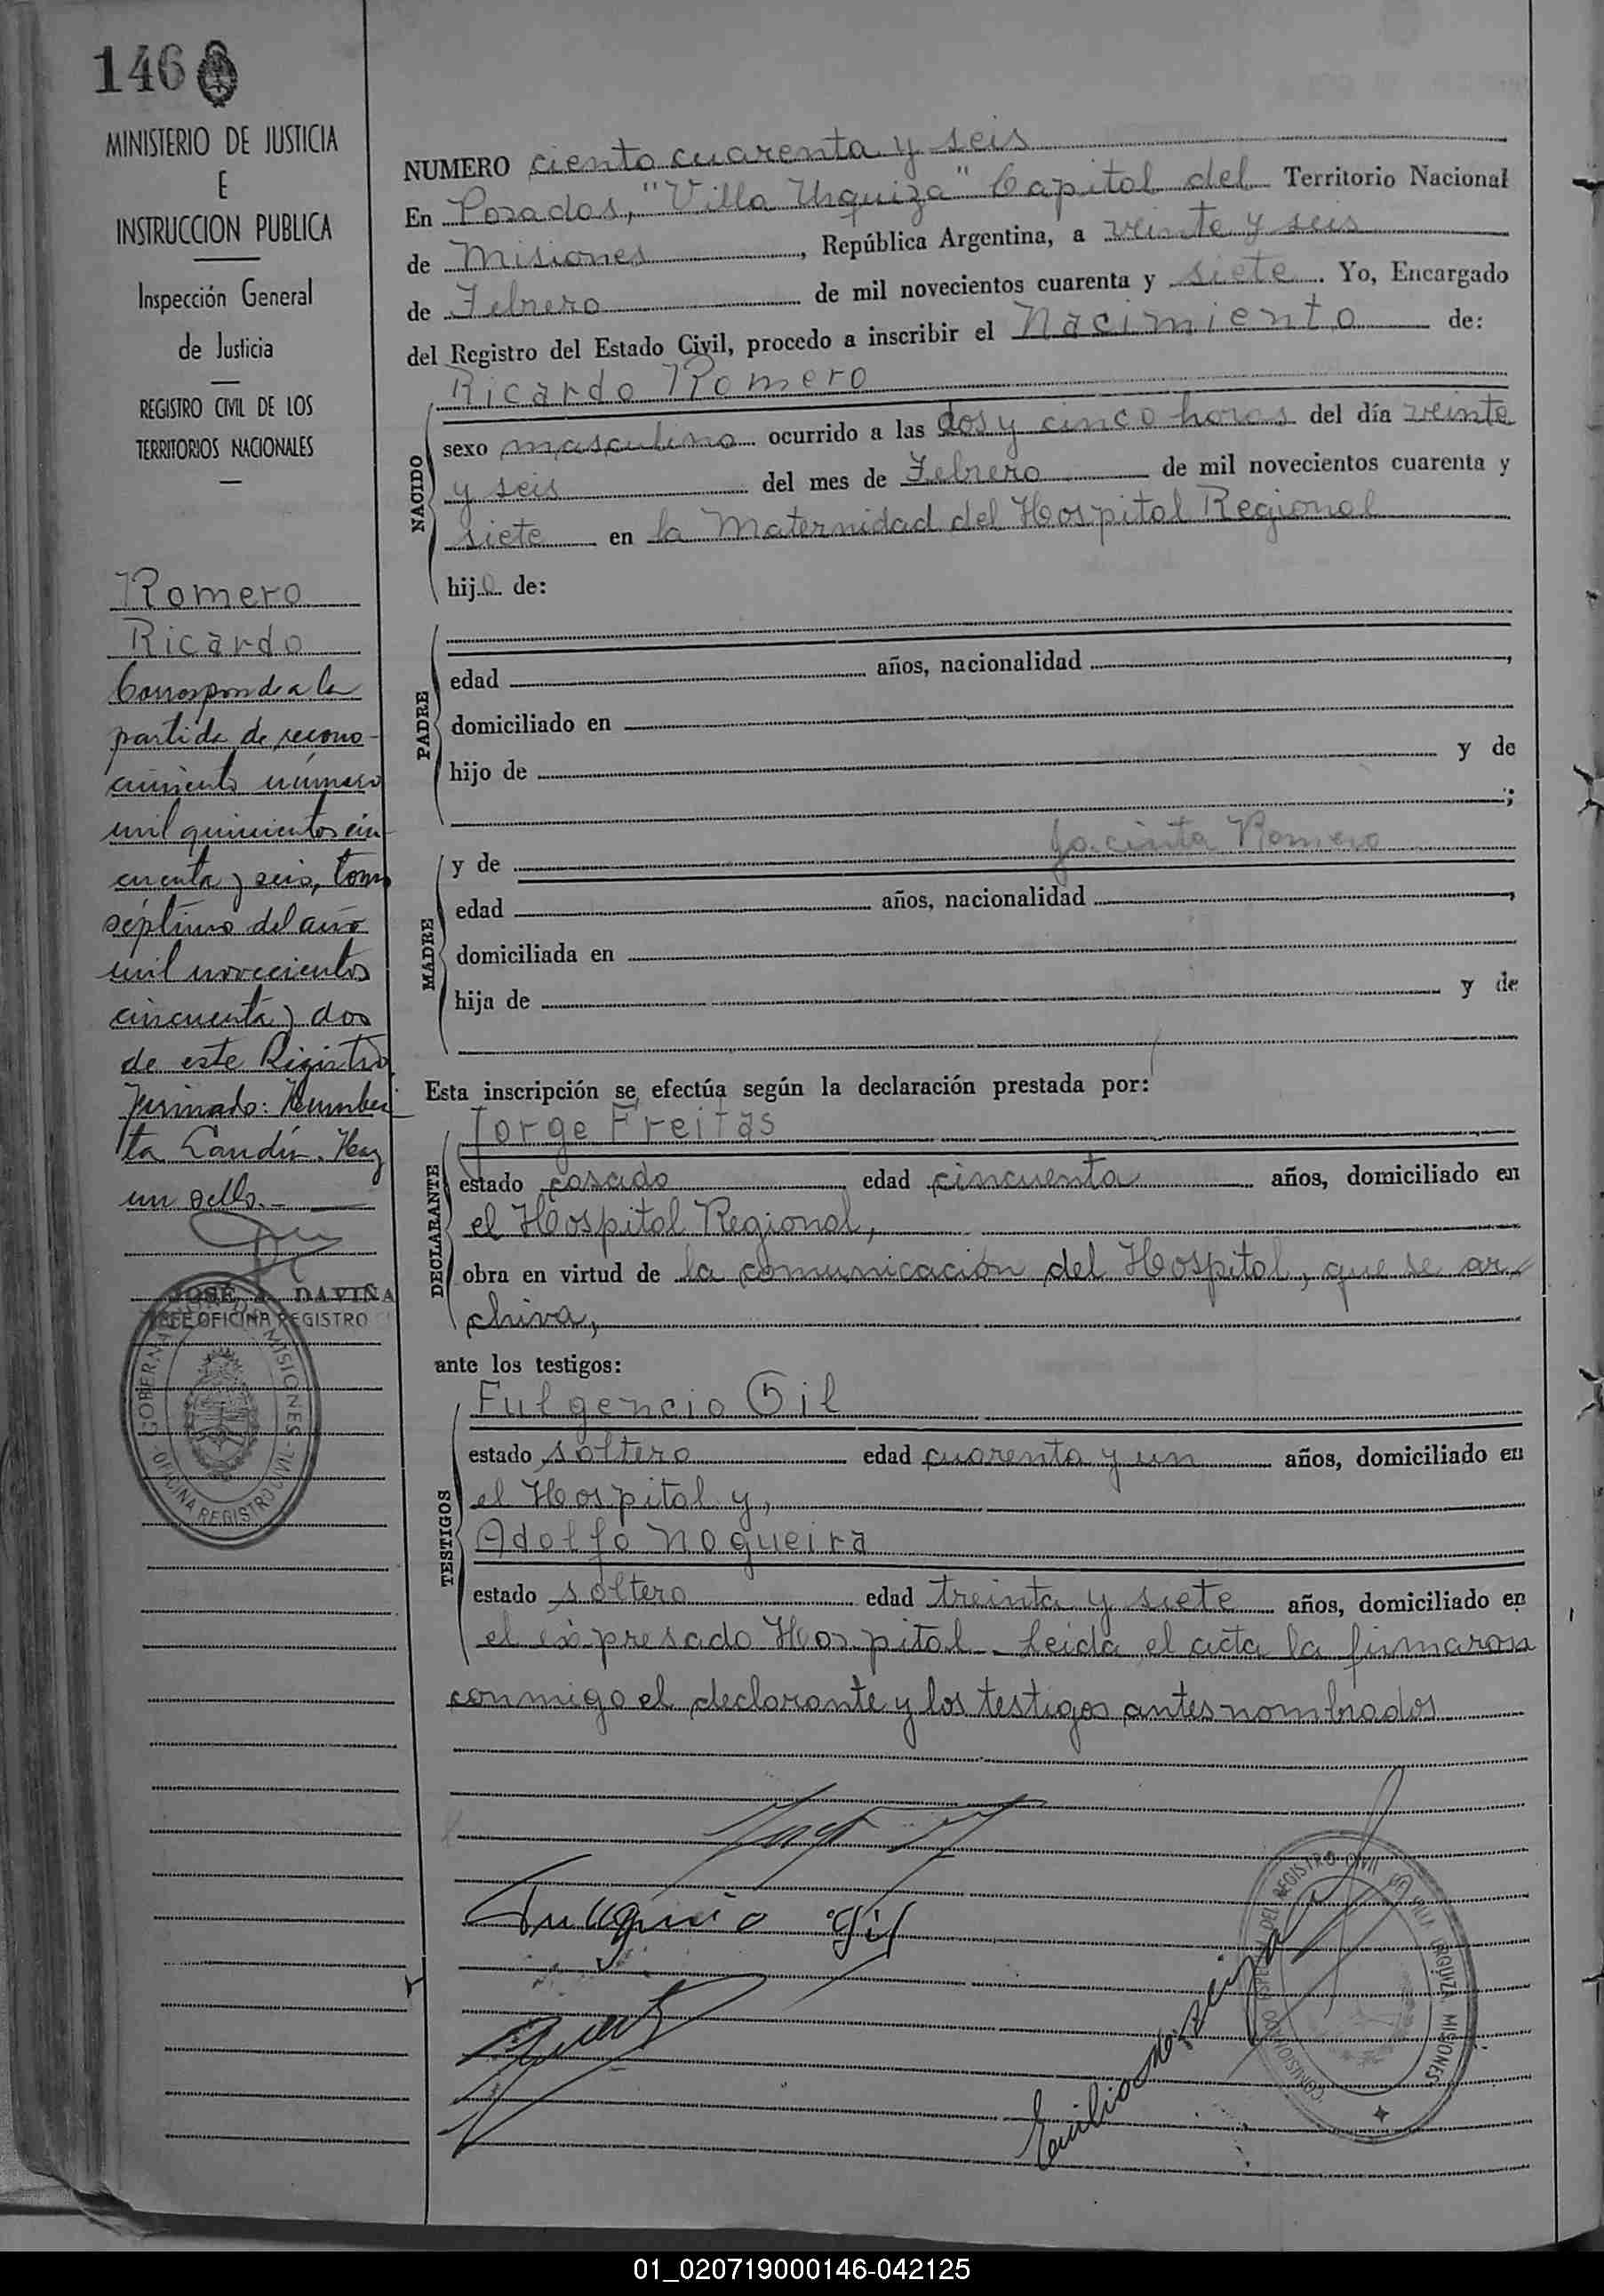 146
MINISTERIO DE JUSTICIA
E
INSTRUCCION PUBLICA
Inspección General
de Justicia
REGISTRO CIVIL DE LOS
TERRITORIOS NACIONALES
Romero
Ricardo
Corresponde a la
partida de recono-
cimiento número
mil quinientos cin-
cuenta y seis, tomo
séptimo del año
mil novecientos
cincuenta y dos
de este Registro.
Firmado: Humber-
ta Landín. Hay
un sello.-
JOSÉ A. DAVIÑA
JEFE OFICINA REGISTRO
GOBERNACION DE MISIONES - OFICINA REGISTRO CIVIL -
NUMERO ciento cuarenta y seis
En Posadas, "Villa Urquiza" Capital del Territorio Nacional
de Misiones, República Argentina, a veinte y seis
de Febrero de mil novecientos cuarenta y siete. Yo, Encargado
del Registro del Estado Civil, procedo a inscribir el Nacimiento de:
Ricardo Romero
NACIDO
sexo masculino ocurrido a las dos y cinco horas del día veinte
y seis del mes de Febrero de mil novecientos cuarenta y
siete en la Maternidad del Hospital Regional
hijo de:
PADRE
edad años, nacionalidad ,
domiciliado en
hijo de y de
;
MADRE
y de Jacinta Romero
edad años, nacionalidad ,
domiciliada en
hija de y de
Esta inscripción se efectúa según la declaración prestada por:
Jorge Freitas
DECLARANTE
estado casado edad cincuenta años, domiciliado en
el Hospital Regional,
obra en virtud de la comunicación del Hospital, que se ar-
chiva,
ante los testigos:
Fulgencio Gil
TESTIGOS
estado soltero edad cuarenta y un años, domiciliado en
el Hospital y,
Adolfo Nogueira
estado soltero edad treinta y siete años, domiciliado en
el expresado Hospital. Leida el acta la firmaron
conmigo el declarante y los testigos antes nombrados
Fulgencio Gil
REGISTRO CIVIL DE VILLA URQUIZA MISIONES
01_020719000146-042125